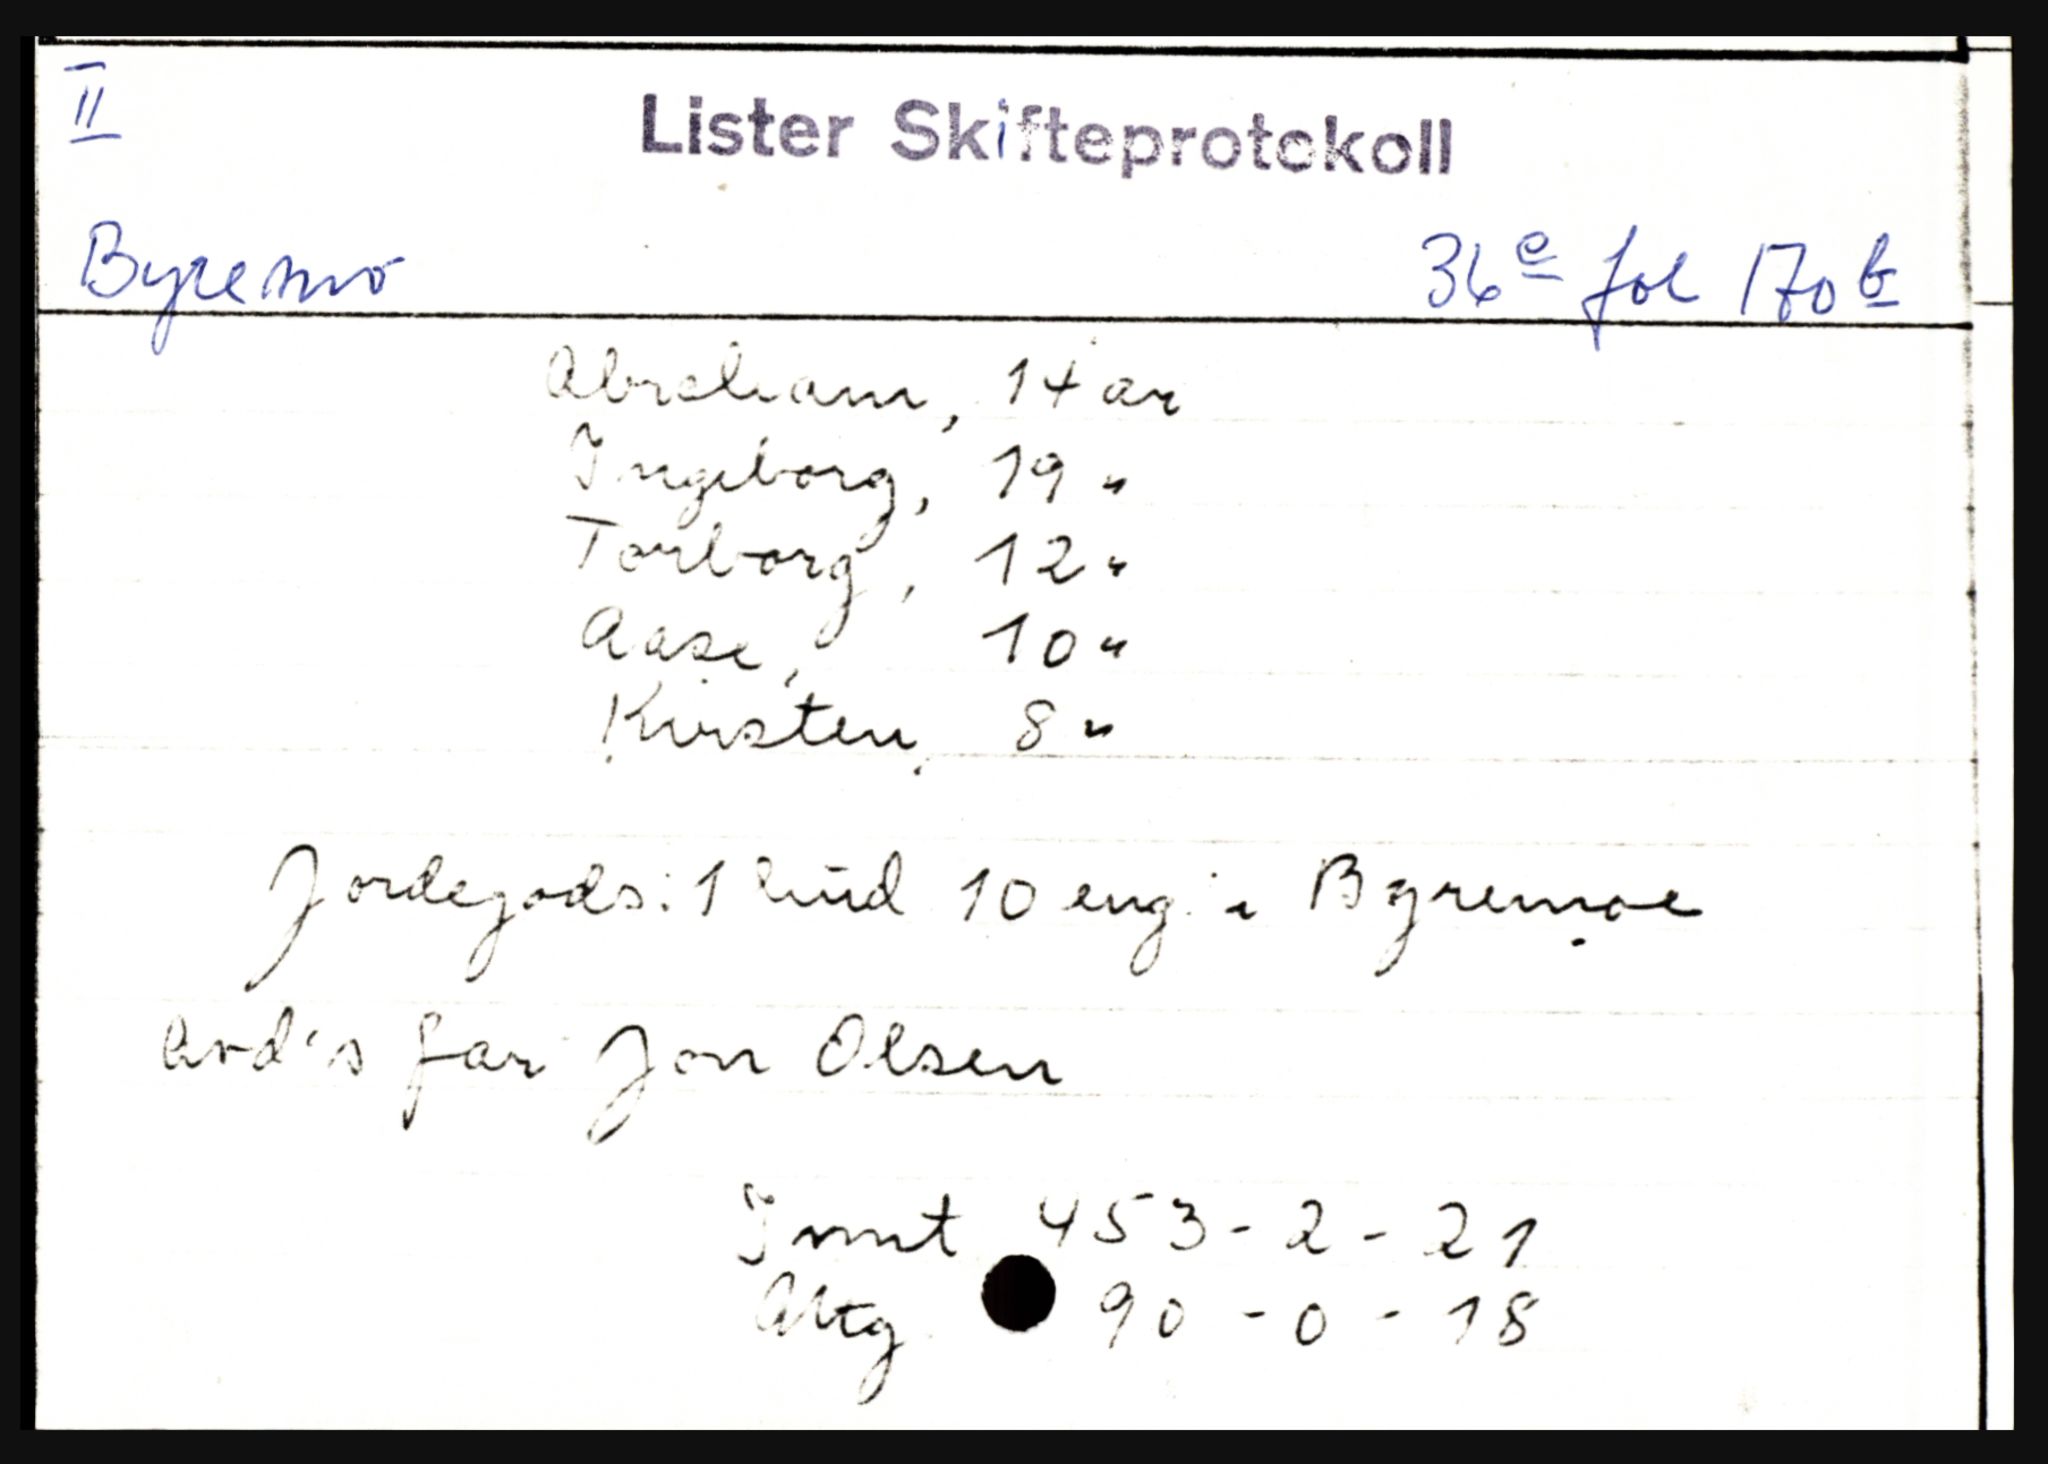 II
Lister Skifteprotokoll
Byremo 36e fol 170b
Abraham, 14 år
Ingeborg, 19 "
Torborg, 12 "
Aase, 10 "
Kirsten, 8 "
Jordegods: 1 hud 10 eng. i Byremoe
Avd's far Jon Olsen
Innt 453-2-21
Utg 90-0-18